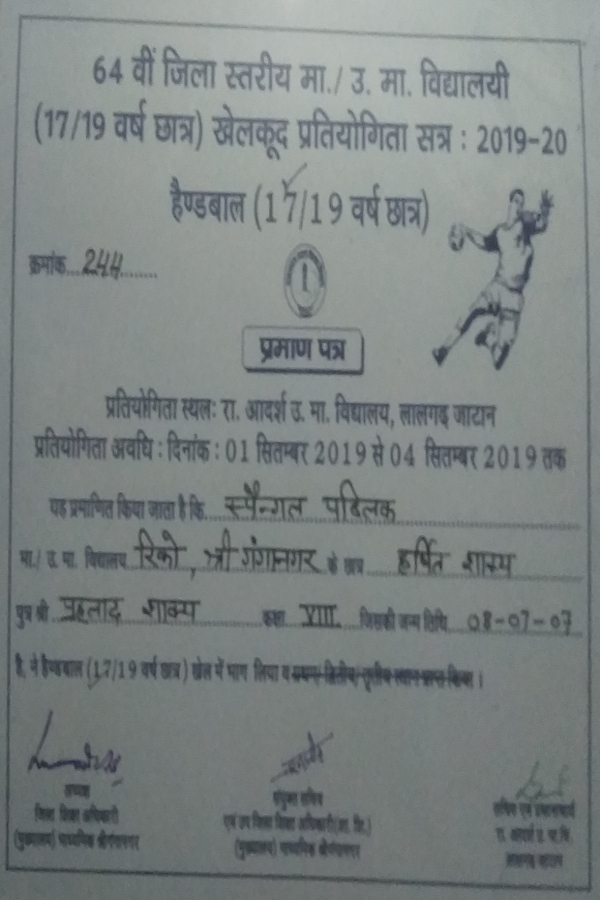 64 वीं जिला स्तरीय मा./ उ. मा. विद्यालयी
(17/19 वर्ष छात्र) खेलकूद प्रतियोगिता सत्र : 2019-20
हैण्डबाल (17/19 वर्ष छात्र)
क्रमांक...244........
प्रमाण पत्र
प्रतियोगिता स्थलः रा. आदर्श उ. मा. विद्यालय, लालगढ़ जाटान
प्रतियोगिता अवधि : दिनांक : 01 सितम्बर 2019 से 04 सितम्बर 2019 तक
यह प्रमाणित किया जाता है कि स्पैन्गल पब्लिक
मा./ उ. मा. विद्यालय रिको, श्री गंगानगर के छात्र हर्षित शाक्य
पुत्र श्री प्रहलाद शाक्य कक्षा VIII जिसकी जन्म तिथि 08-07-07
है, ने हैण्डबाल (17/19 वर्ष छात्र) खेल में भाग लिया व प्रथम/द्वितीय/तृतीय स्थान प्राप्त किया।
अध्यक्ष
जिला शिक्षा अधिकारी
(मुख्यालय) माध्यमिक श्रीगंगानगर
संयुक्त सचिव
एवं उप जिला शिक्षा अधिकारी(शा. शि.)
(मुख्यालय) माध्यमिक श्रीगंगानगर
सचिव एवं प्रधानाचार्य
रा. आदर्श उ. मा. वि.
लालगढ़ जाटान